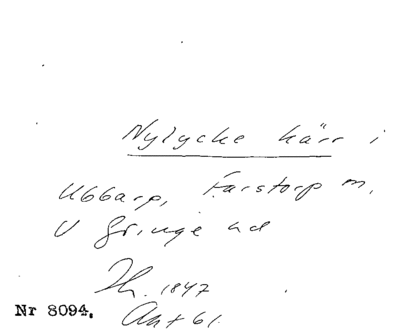 Nylycke kärr i
Ubbarp, Farstorp m,
V Göinge hd
Th. 1847
Ant 61.
Nr 8094.